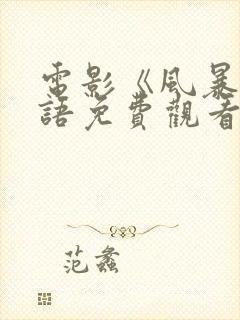 電影《風暴
語免費觀看
范蠡